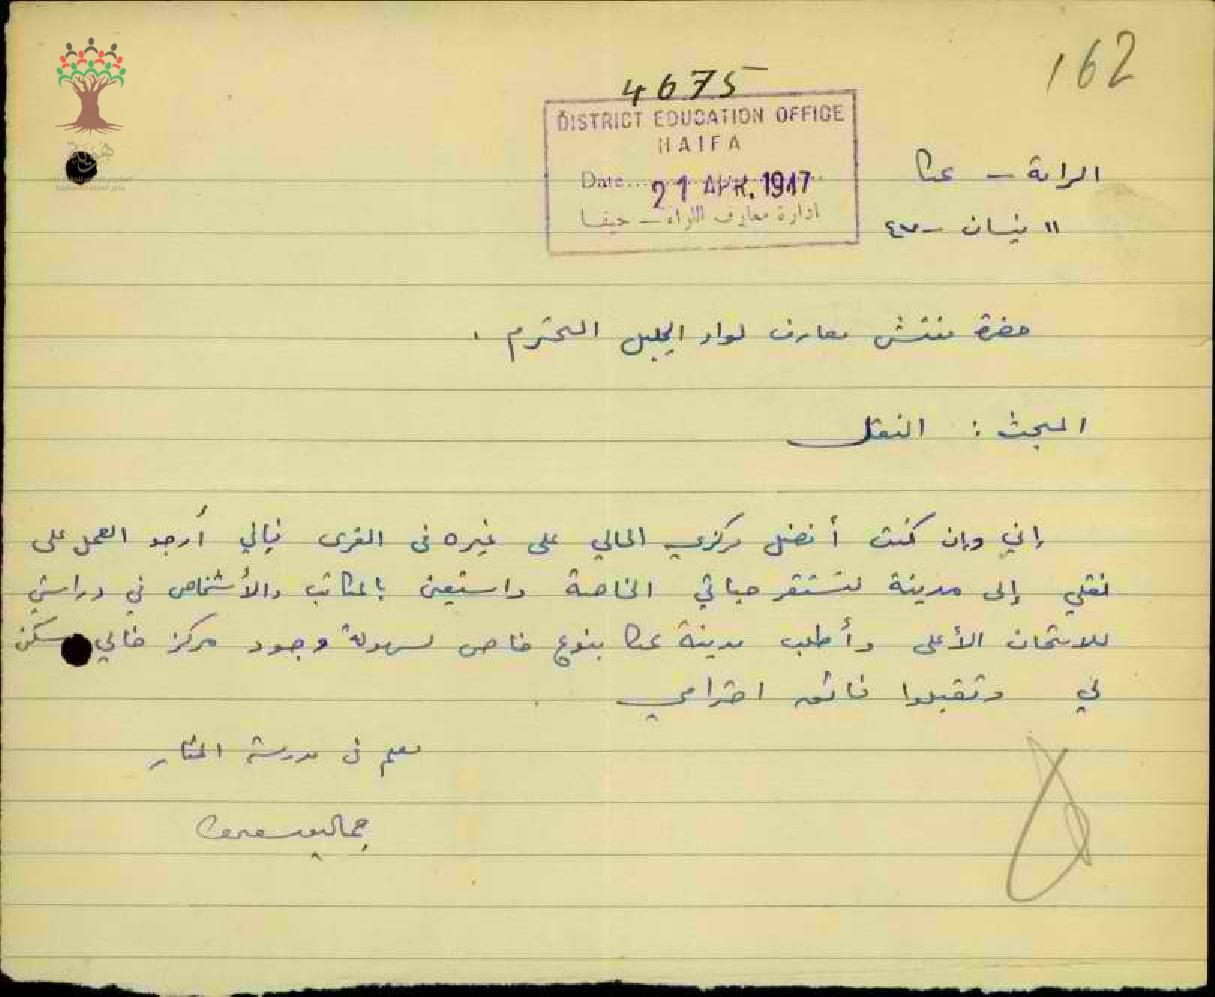 162
4675
DISTRICT EDUCATION OFFICE
HAIFA
Date... 21 APR. 1947
ادارة معارف اللواء – حيفا
هوية
الرامة – عكا
١١ نيسان – ٤٧
حضرة مفتش معارف لواء الجليل المحترم .
المبحث : النقل
إني وإن كنت أفضل مركزي الحالي على غيره في القرى فإني أرجو العمل على
نقلي إلى مدينة لتستقر حياتي الخاصة واستعين بالمكاتب والأشخاص في دراستي
للامتحان الأعلى وأطلب مدينة عكا بنوع خاص لسهولة وجود مركز خالي وسكن
لي وتقبلوا فائق احترامي .
معلم في مدرسة
جمال